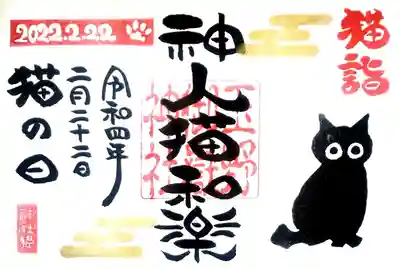 猫詣
神人猫和楽
2022.2.22
令和四年
二月二十二日
猫の日